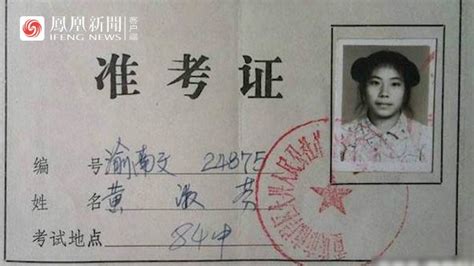 鳳凰新聞 客户端
IFENG NEWS
准考证
编 号 渝南文 24875
姓 名 黄淑芬
考试地点 84中